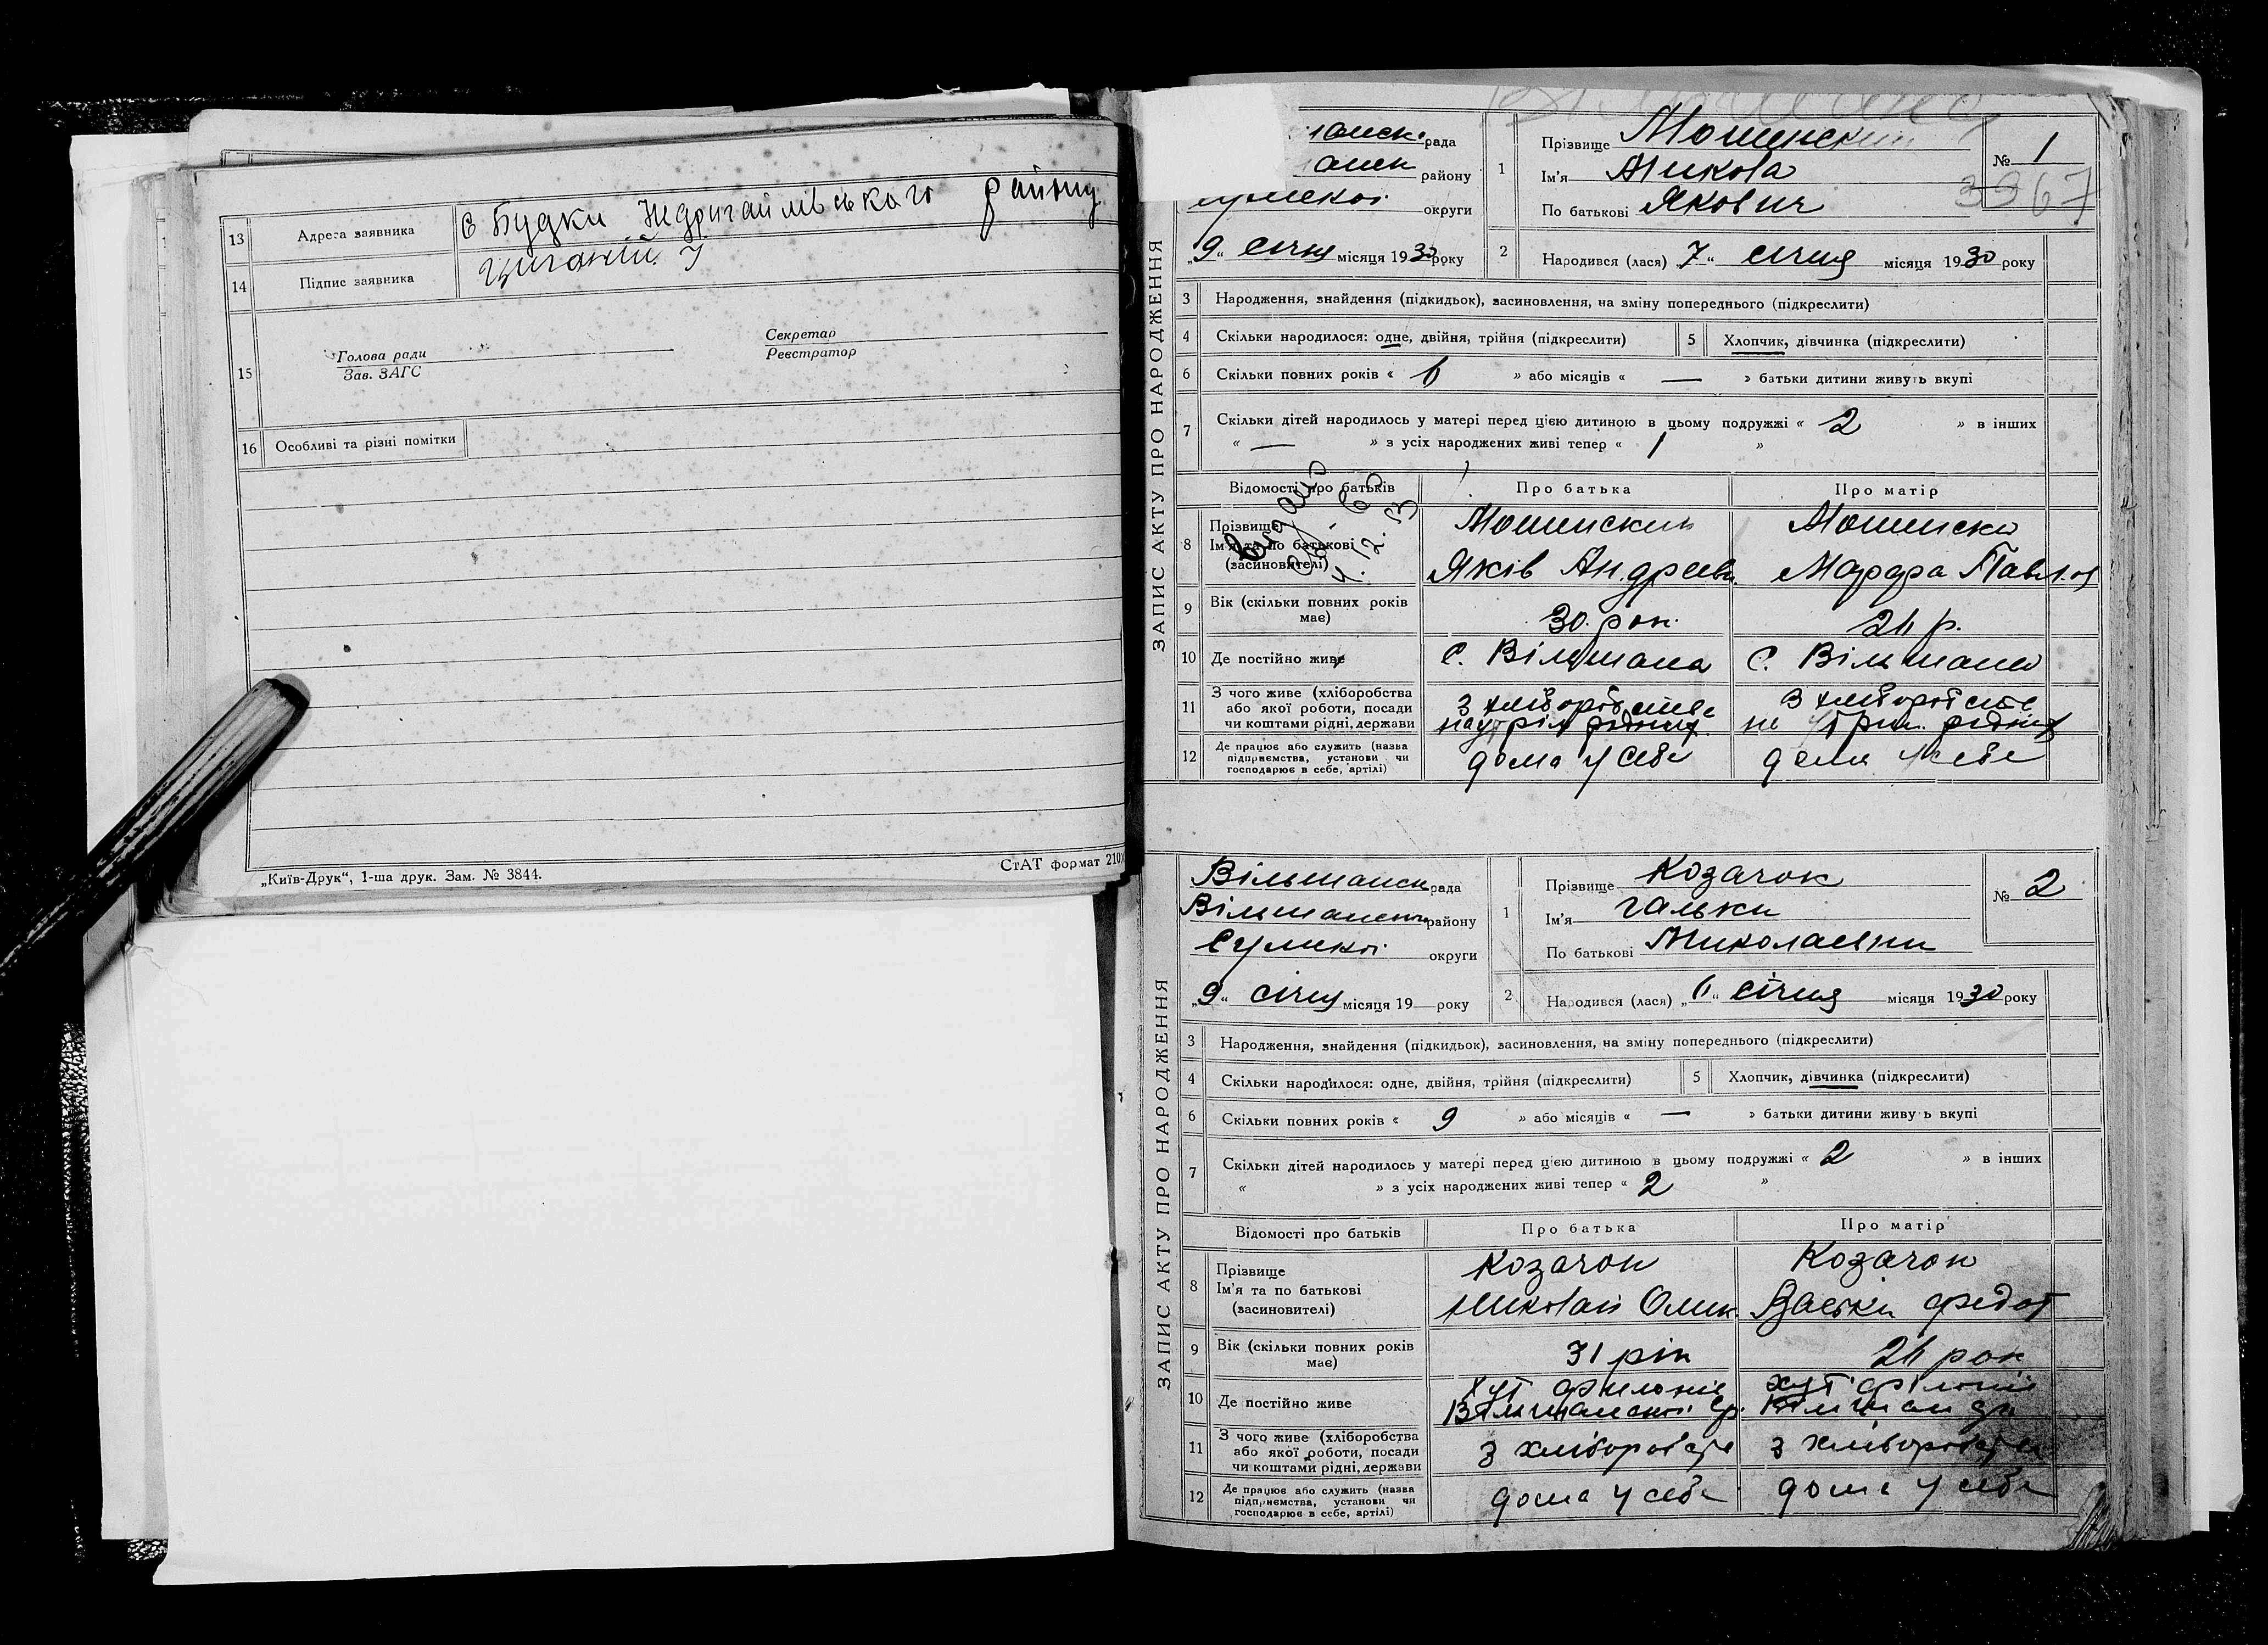 13 Адреса заявника с Будки Недригайлівського району
14 Підпис заявника
15 Голова ради
Зав. ЗАГС
Секретар
Реєстратор
16 Особливі та різні помітки
„Київ-Друк“, 1-ша друк. Зам. № 3844.
СтАТ формат 210
ЗАПИС АКТУ ПРО НАРОДЖЕННЯ
рада
району
округи
„9“ січня місяця 1930 року
1 Прізвище Мошенский
Ім'я Микола
По батькові Якович
№ 1
3967
2 Народився (лася) „7“ січня місяця 1930 року
3 Народження, знайдення (підкидьок), засиновлення, на зміну попереднього (підкреслити)
4 Скільки народилося: одне, двійня, трійня (підкреслити)
5 Хлопчик, дівчинка (підкреслити)
6 Скільки повних років « 6 » або місяців « — » батьки дитини живуть вкупі
7 Скільки дітей народилось у матері перед цією дитиною в цьому подружжі « 2 » в інших
« — » з усіх народжених живі тепер « 1 »
Відомості про батьків Про батька Про матір
8 Прізвище Ім'я та по батькові (засиновителі)
Мошенский Яків Андреев.
Мошенска Марфа Павл.
9 Вік (скільки повних років має) 30 рок. 26 р.
10 Де постійно живе с. Вільшана с. Вільшана
11 З чого живе (хліборобства або якої роботи, посади чи коштами рідні, держави
12 Де працює або служить (назва підприємства, установи чи господарює в себе, артілі) дома у себе дома у себе
ЗАПИС АКТУ ПРО НАРОДЖЕННЯ
Вільшанск рада
Вільшанськ району
Сумскої округи
„9“ січня місяця 19 року
1 Прізвище Козачок
Ім'я Гальки
По батькові Миколаевни
№ 2
2 Народився (лася) „6“ січня місяця 1930 року
3 Народження, знайдення (підкидьок), засиновлення, на зміну попереднього (підкреслити)
4 Скільки народилося: одне, двійня, трійня (підкреслити)
5 Хлопчик, дівчинка (підкреслити)
6 Скільки повних років « 9 » або місяців « — » батьки дитини живу ь вкупі
7 Скільки дітей народилось у матері перед цією дитиною в цьому подружжі « 2 » в інших
« » з усіх народжених живі тепер « 2 »
Відомості про батьків Про батька Про матір
8 Прізвище Ім'я та по батькові (засиновителі)
Козачок Николай
Козачок Федот
9 Вік (скільки повних років має) 31 рік 26 рок
10 Де постійно живе хут
11 З чого живе (хліборобства або якої роботи, посади чи коштами рідні, держави
12 Де працює або служить (назва підприємства, установи чи господарює в себе, артілі) дома у себе дома у себе